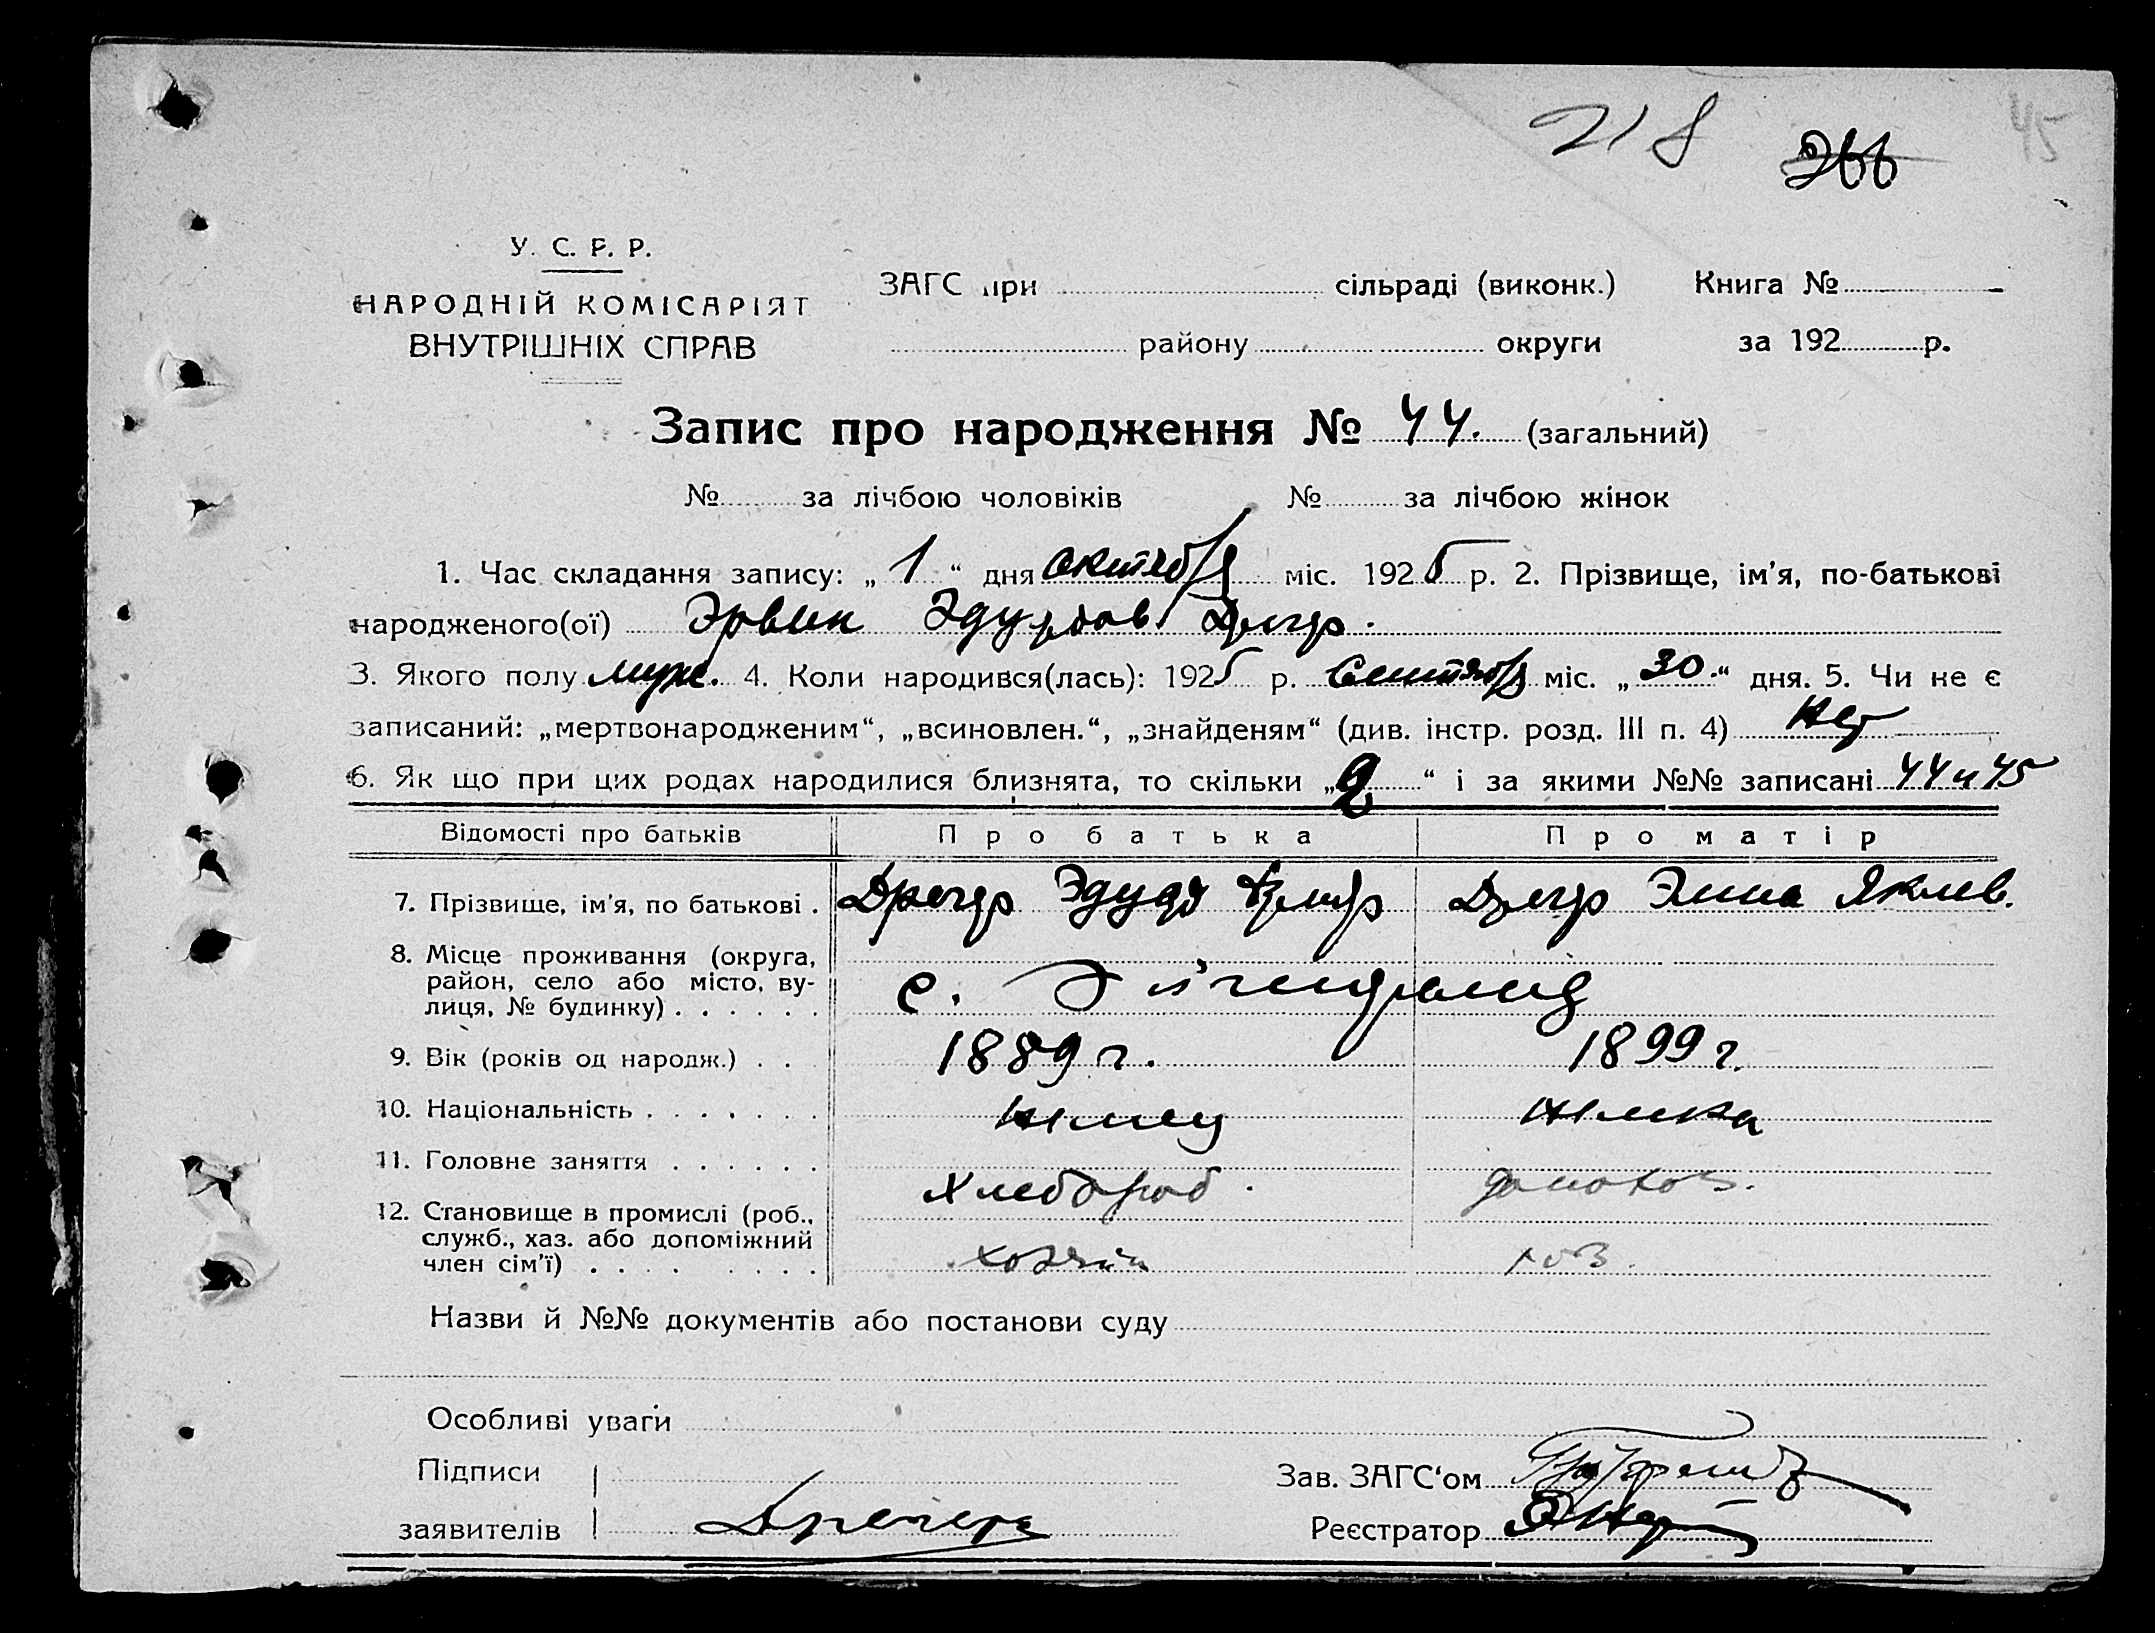 218 266 45
У. С. Р. Р.
НАРОДНІЙ КОМІСАРІЯТ
ВНУТРІШНІХ СПРАВ
ЗАГС при сільраді (виконк.) Книга №
району округи за 192 р.
Запис про народження № 44. (загальний)
№ за лічбою чоловіків № за лічбою жінок
1. Час складання запису: „ 1 “ дня октября міс. 1925 р. 2. Прізвище, ім'я, по-батькові
народженого(ої) Эрвин Эдуардов
3. Якого полу муж. 4. Коли народився(лась): 1925 р. Сентября міс. „ 30. “ дня. 5. Чи не є
записаний: „мертвонародженим“, „всиновлен.“, „знайденям“ (див. інстр. розд. III п. 4) нет
6. Як що при цих родах народилися близнята, то скільки „ 2 “ і за якими №№ записані 44 и 45
Відомості про батьків Про батька Про матір
7. Прізвище, ім'я, по батькові . Эдуард
8. Місце проживання (округа,
район, село або місто, ву-
лиця, № будинку) . . . . . . с.
9. Вік (років од народж.) . . 1889 г. 1899 г.
10. Національність . . . . . . . немец немка
11. Головне заняття . . . . . . хлебороб. домохоз.
12. Становище в промислі (роб.,
служб., хаз. або допоміжний
член сім'ї) . . . . . . . . хозяин хоз.
Назви й №№ документів або постанови суду
Особливі уваги
Підписи Зав. ЗАГС‘ом
заявителів Реєстратор